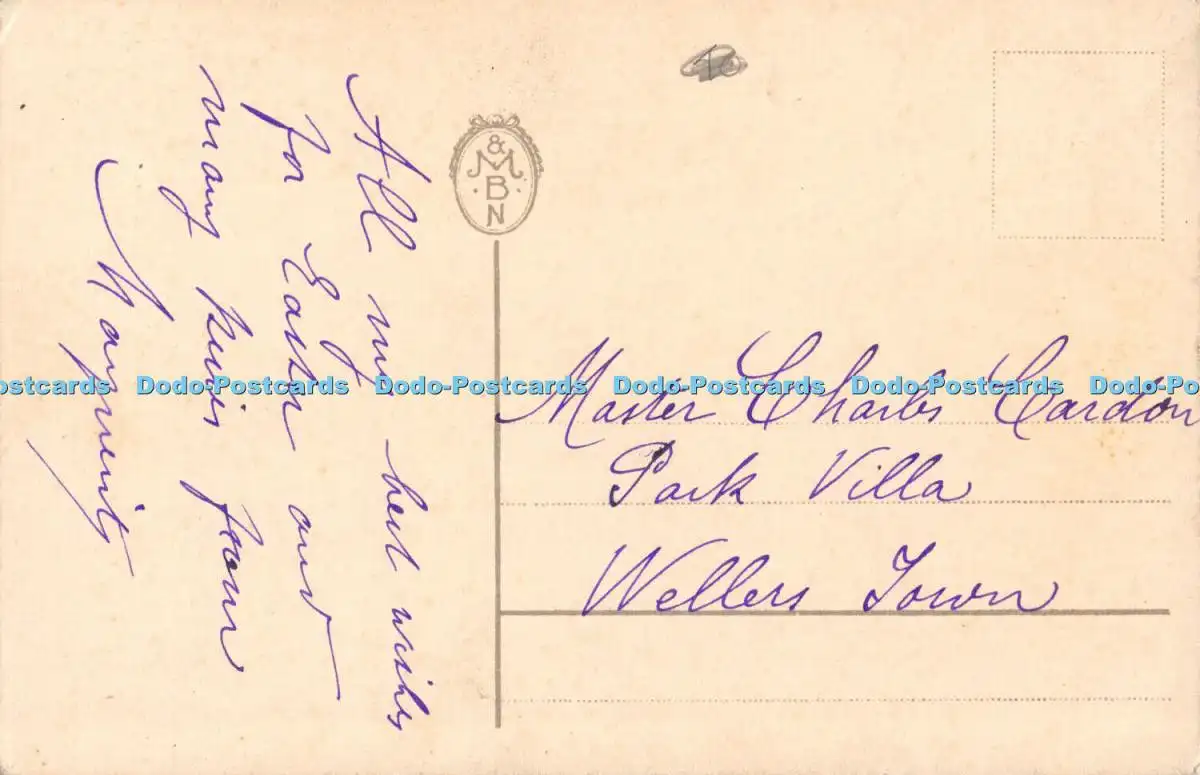 All my best wishes
for Easter and
many kisses from
&
M
B
N
Master Charles Cardon
Park Villa
Wellers Town
Dodo-Postcards Dodo-Postcards Dodo-Postcards Dodo-Postcards Dodo-Postcards